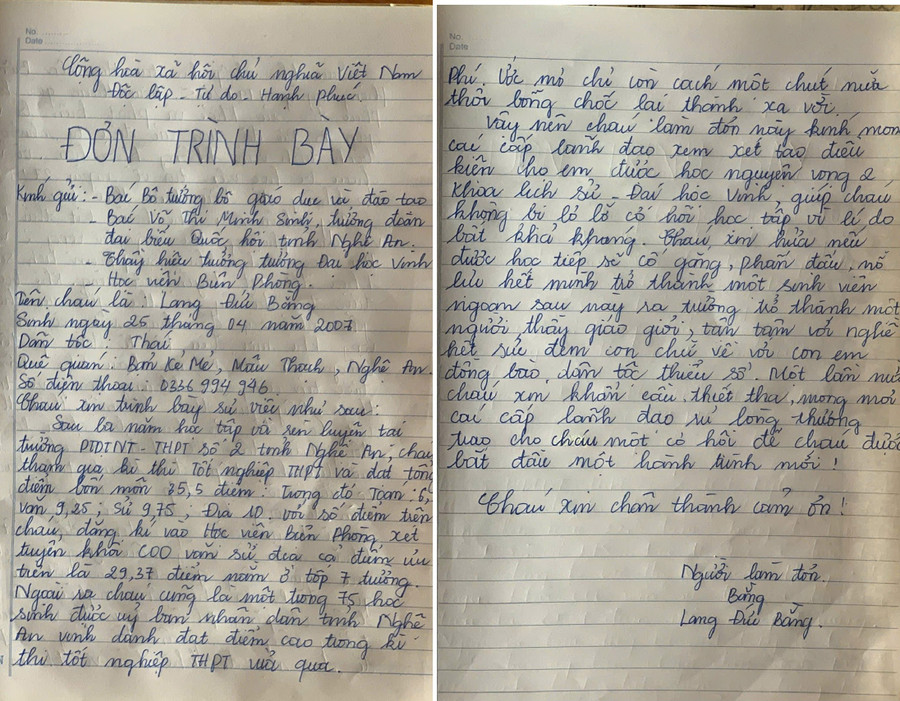 No.
Date
Cộng hoà xã hội chủ nghĩa Việt Nam
Độc lập - Tự do - Hạnh phúc.
ĐƠN TRÌNH BÀY
Kính gửi: - Bác Bộ trưởng bộ giáo dục và đào tạo
- Bác Võ Thị Minh Sinh, trưởng đoàn
đại biểu Quốc hội tỉnh Nghệ An.
- Thầy hiệu trưởng trường Đại học Vinh
- Học viện Biên Phòng.
Tên cháu là : Lang Đức Bằng
Sinh ngày 25 tháng 04 năm 2007
Dân tộc : Thái
Quê quán : Bản Kẻ Mẻ, Mậu Thạch, Nghệ An.
Số điện thoại : 0356 994 946
Cháu xin trình bày sự việc như sau :
Sau ba năm học tập và rèn luyện tại
trường PTDTNT - THPT số 2 tỉnh Nghệ An, cháu
tham gia kì thi Tốt nghiệp THPT và đạt tổng
điểm bốn môn 35,5 điểm : Trong đó Toán : 6,
văn 9,25 ; Sử 9,75 ; Địa 10. với số điểm trên
cháu, đăng kí vào Học viện biên Phòng xét
tuyển khối C00 văn sử địa cả điểm ưu
tiên là 29,37 điểm nằm ở tốp 7 trường.
Ngoài ra cháu cũng là một trong 75 học
sinh được uỷ ban nhân dân tỉnh Nghệ
An vinh danh đạt điểm cao trong kì
thi tốt nghiệp THPT vừa qua.
No.
Date
Phí. Ước mơ chỉ còn cách một chút nữa
thôi bỗng chốc lại thành xa vời.
Vậy nên cháu làm đơn này kính mong
các cấp lãnh đạo xem xét tạo điều
kiện cho em được học nguyện vọng 2
khoa lịch sử - Đại học Vinh, giúp cháu
không bị lỡ lỡ cơ hội học tập vì lí do
bất khả kháng. Cháu xin hứa nếu
được học tiếp sẽ cố gắng, phấn đấu, nỗ
lực hết mình trở thành một sinh viên
ngoan sau này ra trường trở thành một
người thầy giáo giỏi, tận tâm với nghề
hết sức đem con chữ về với con em
đồng bào dân tộc thiểu số. Một lần nữa
cháu xin khẩn cầu, thiết tha, mong mỏi
các cấp lãnh đạo sự lòng thương
trao cho cháu một cơ hội để cháu được
bắt đầu một hành trình mới !
Cháu xin chân thành cảm ơn !
Người làm đơn.
Bằng
Lang Đức Bằng.